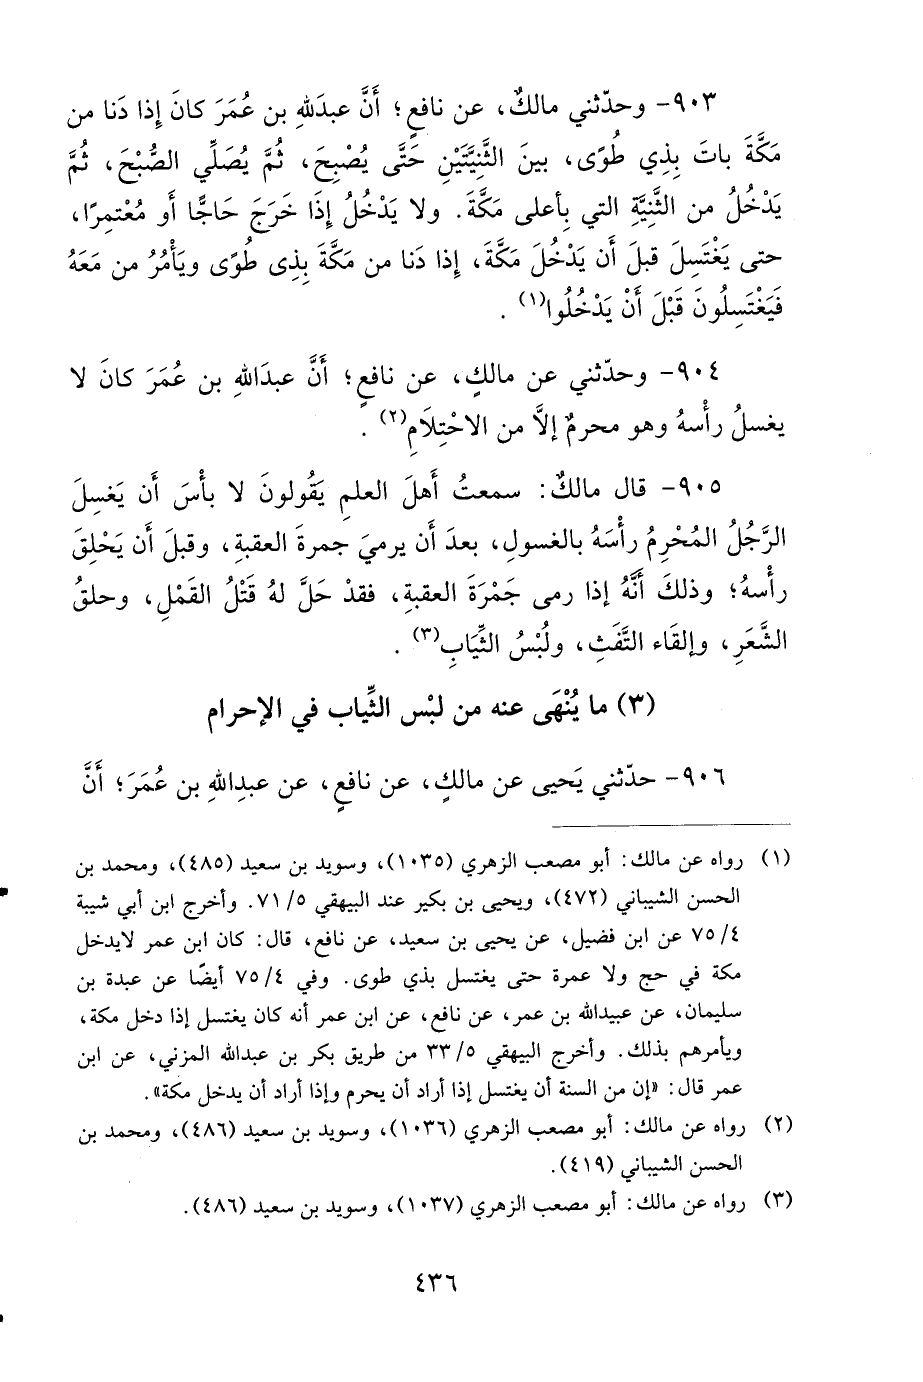 ٩٠٣- وحدّثني مالكٌ، عن نافعٍ؛ أَنَّ عبدَاللهِ بن عُمَرَ كانَ إِذا دَنا من
مَكَّةَ باتَ بِذِي طُوًى، بينَ الثَّنِيَّتَيْنِ حَتَّى يُصْبِحَ، ثُمَّ يُصَلِّي الصُّبْحَ، ثُمَّ
يَدْخُلُ من الثَّنِيَّةِ التي بِأعلى مَكَّةَ. ولا يَدْخُلُ إِذَا خَرَجَ حَاجًّا أَو مُعْتمِرًا،
حتى يَغْتَسِلَ قبلَ أَن يَدْخُلَ مَكَّةَ، إِذا دَنا من مَكَّةَ بِذِى طُوًى ويَأْمُرُ من مَعَهُ
فَيَغْتَسِلُونَ قَبْلَ أَنْ يَدْخُلُوا(١) .
٩٠٤- وحدّثني عن مالكٍ، عن نافعٍ؛ أَنَّ عبدَاللهِ بن عُمَرَ كانَ لا
يغسلُ رأْسهُ وهو محرمٌ إلاَّ من الاحْتِلَامِ(٢) .
٩٠٥- قال مالكٌ: سمعتُ أَهلَ العلمِ يَقُولونَ لا بأْسَ أَن يَغسِلَ
الرَّجُلُ المُحْرِمُ رأْسَهُ بالغسولِ، بعدَ أَن يرميَ جمرةَ العقبةِ، وقبلَ أَن يَحْلِقَ
رأْسهُ؛ وذلكَ أَنَّهُ إذا رمى جَمْرَةَ العقبةِ، فقدْ حَلَّ لهُ قَتْلُ القَمْلِ، وحلقُ
الشَّعَرِ، وإلقَاء التَّفَثِ، ولُبْسُ الثِّيَابِ(٣) .
(٣) ما يُنْهَى عنه من لبْس الثِّياب في الإحرام
٩٠٦- حدّثني يَحيى عن مالكٍ، عن نافعٍ، عن عبدِاللهِ بن عُمَرَ؛ أَنَّ
(١) رواه عن مالك: أبو مصعب الزهري (١٠٣٥)، وسويد بن سعيد (٤٨٥)، ومحمد بن
الحسن الشيباني (٤٧٢)، ويحيى بن بكير عند البيهقي ٥/ ٧١. وأخرج ابن أبي شيبة
٤/ ٧٥ عن ابن فضيل، عن يحيى بن سعيد، عن نافع، قال: كان ابن عمر لايدخل
مكة في حج ولا عمرة حتى يغتسل بذي طوى. وفي ٤/ ٧٥ أيضًا عن عبدة بن
سليمان، عن عبيدالله بن عمر، عن نافع، عن ابن عمر أنه كان يغتسل إذا دخل مكة،
ويأمرهم بذلك. وأخرج البيهقي ٥/ ٣٣ من طريق بكر بن عبدالله المزني، عن ابن
عمر قال: «إن من السنة أن يغتسل إذا أراد أن يحرم وإذا أراد أن يدخل مكة».
(٢) رواه عن مالك: أبو مصعب الزهري (١٠٣٦)، وسويد بن سعيد (٤٨٦)، ومحمد بن
الحسن الشيباني (٤١٩).
(٣) رواه عن مالك: أبو مصعب الزهري (١٠٣٧)، وسويد بن سعيد (٤٨٦).
٤٣٦